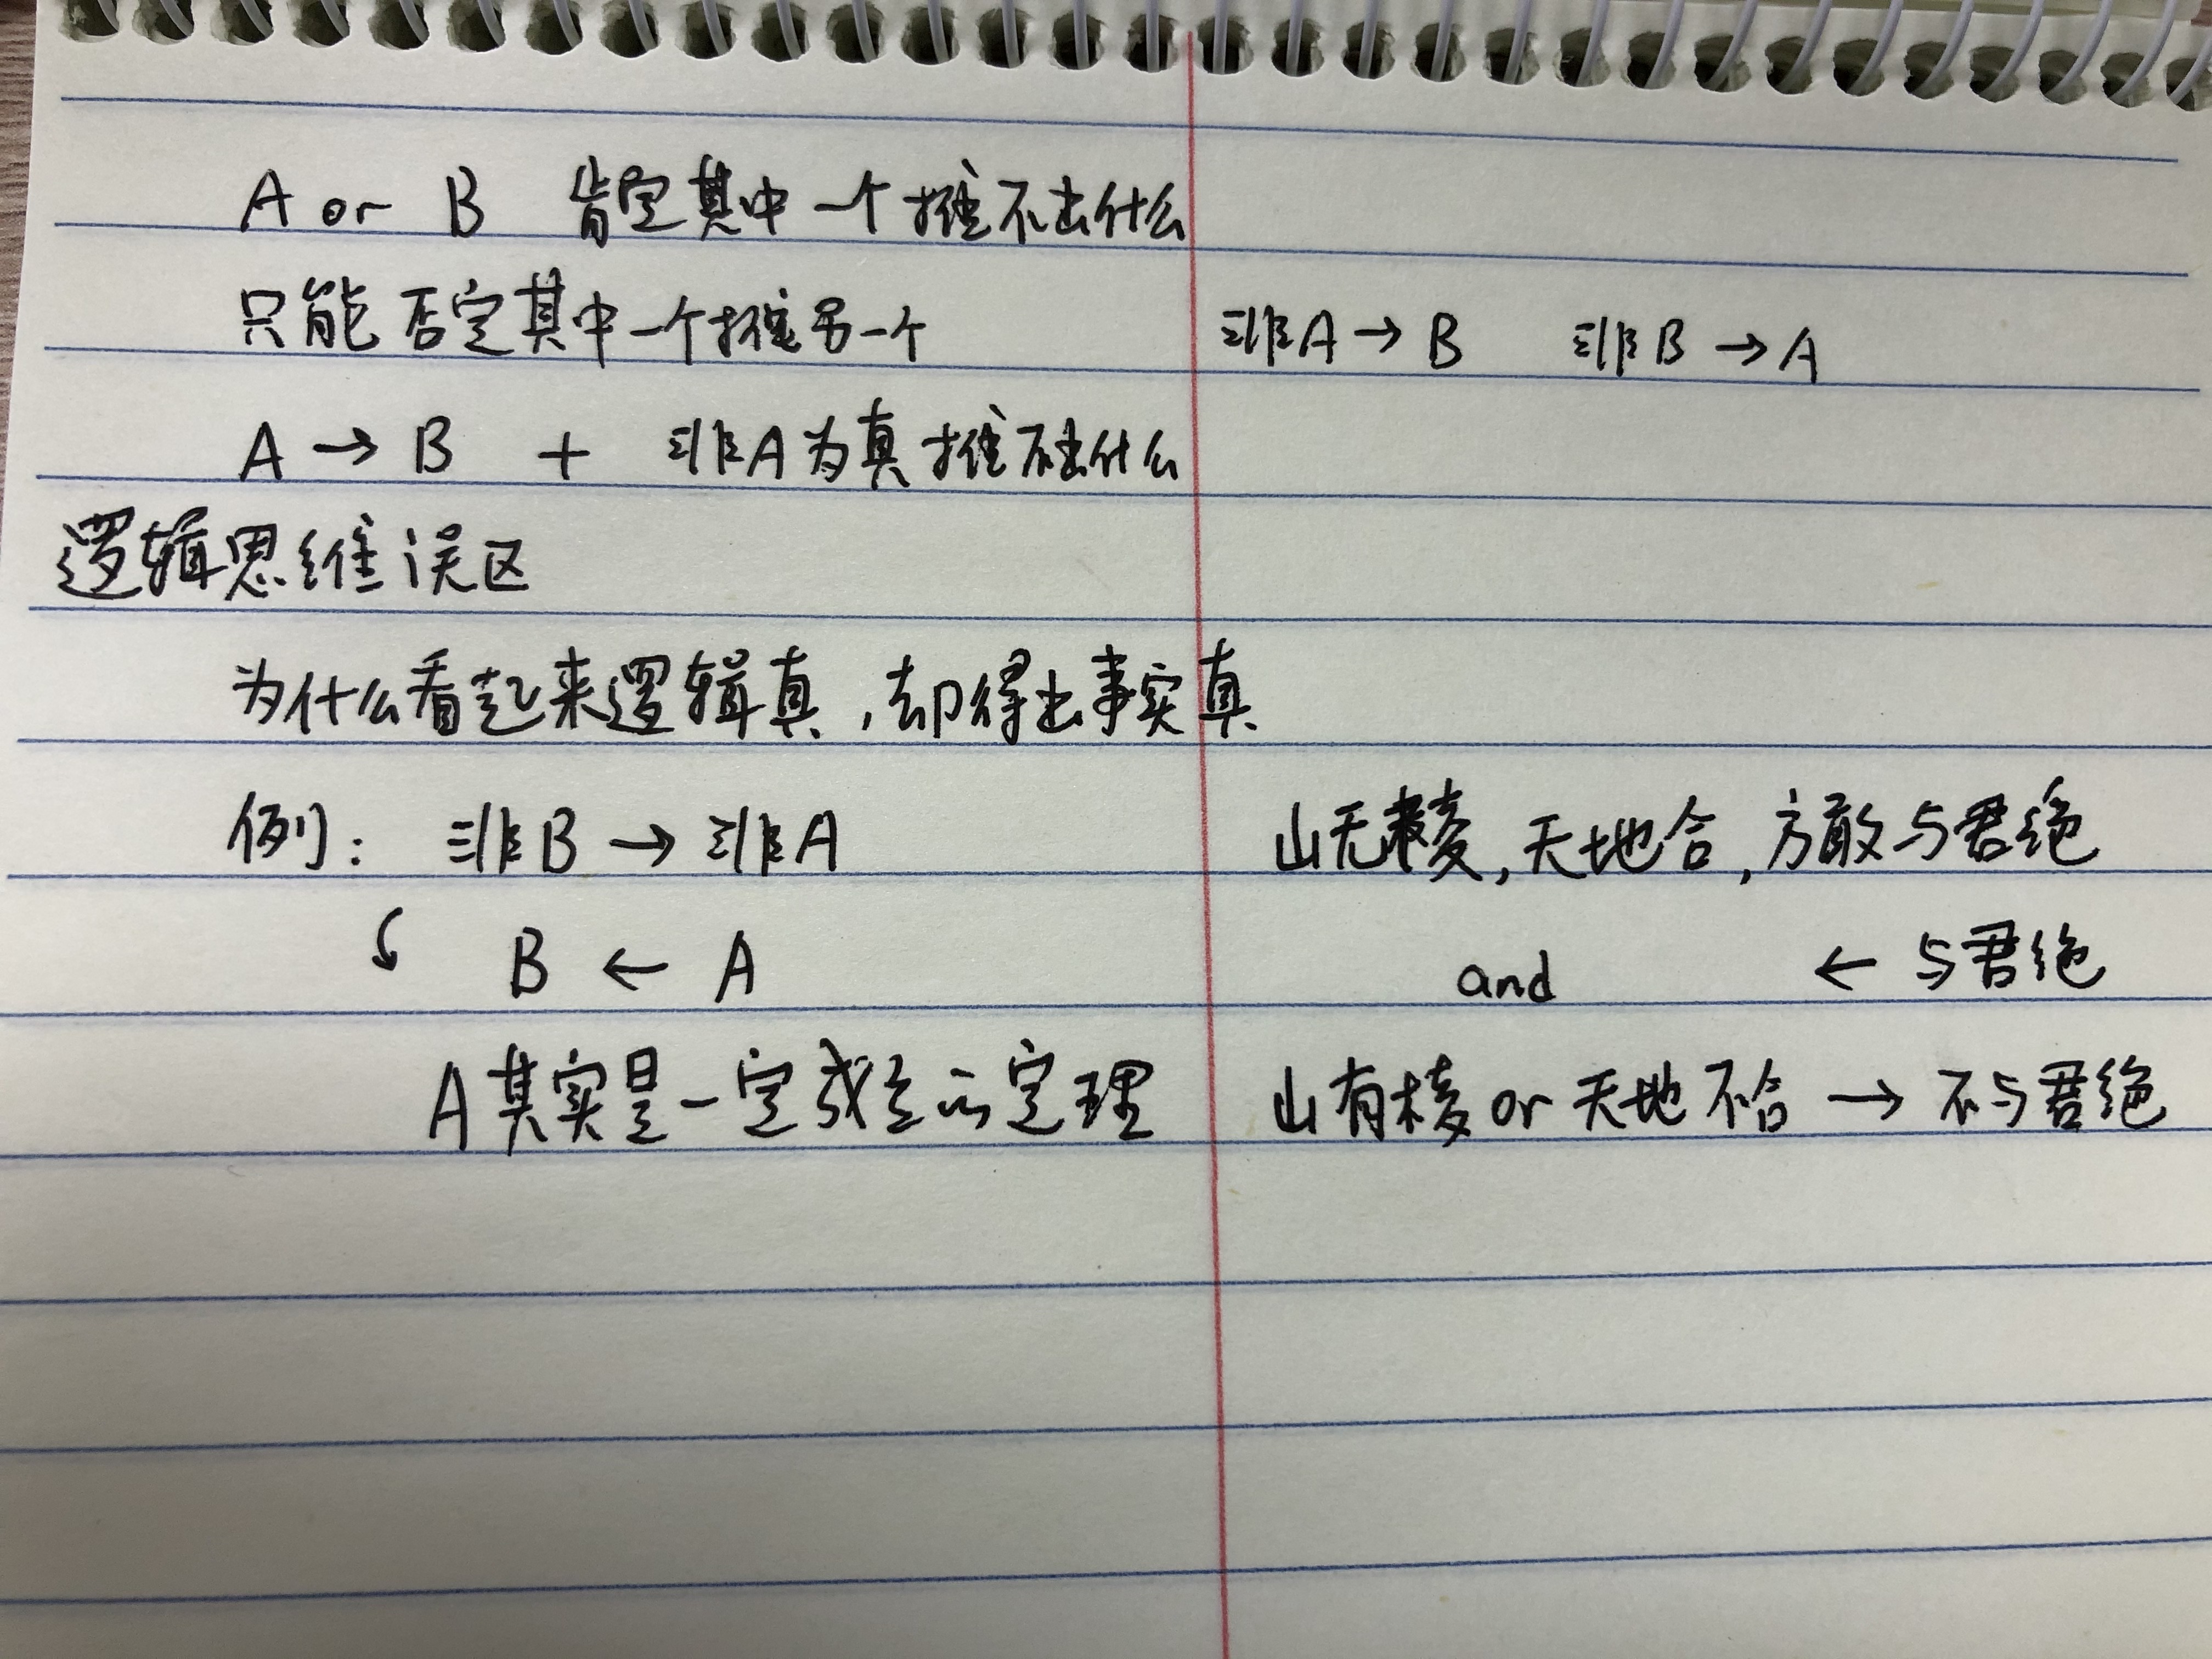 A or B 肯定其中一个推不出什么
只能否定其中一个推另一个 非A→B 非B→A
A→B + 非A为真推不出什么
逻辑思维误区
为什么看起来逻辑真,却得出事实真
例: 非B→非A 山无棱,天地合,方敢与君绝
B←A and ←与君绝
A其实是一定成立的定理 山有棱or天地不合→不与君绝